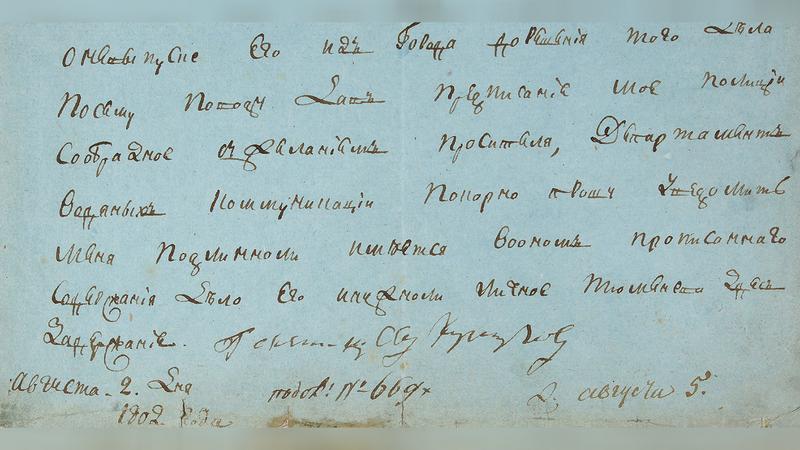 О невыпуске Его изъ Города до решенія того Дела
Посему поводу Датъ предписаніе мое полиціи
Сообразное съ Желаніемъ просителя, Департаментъ
Водяныхъ Коммуникаціи Покорно прошу Уведомить
Меня Подлинноли имеется Вономъ прописаннаго
Содержанія Дело Его инужноли личное Тюменева Здесь
Задержаніе.
Августа 2. Дня
1802. Года № 669
августа 5.